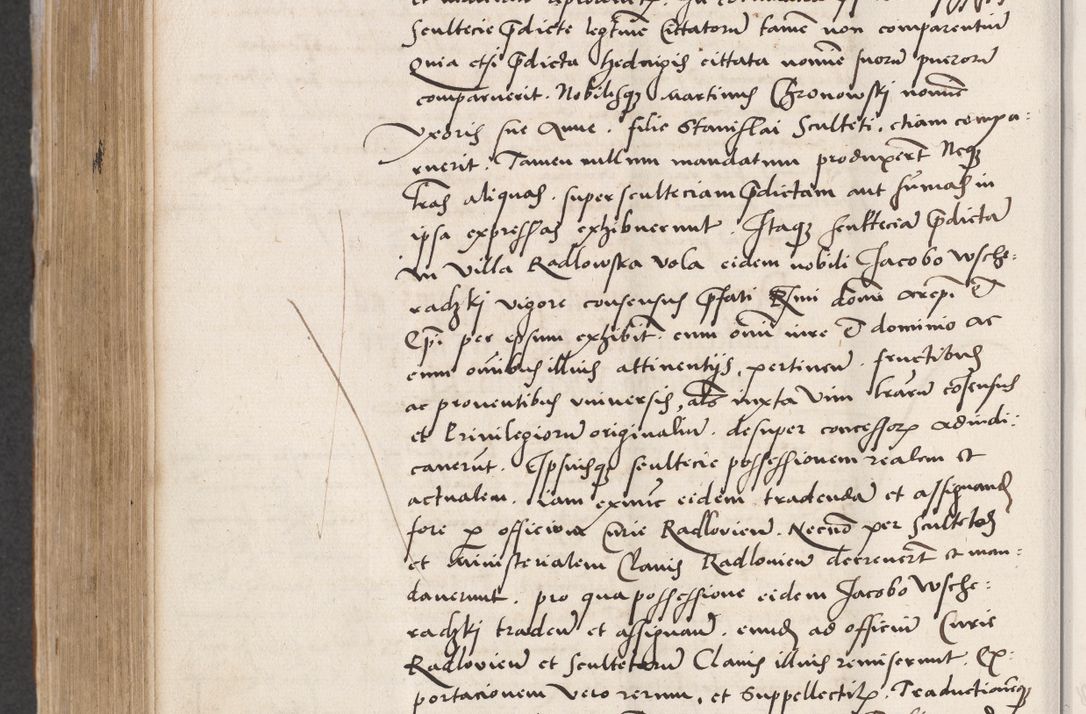 Scultecie p̃dicte legtime Cittatorũ tamẽ non comparentiũ
Quia etsi p̃dicta Hedvigis cittata nomine suorũ puerorũ
comparuerit. Nobilisq̃ Martinus Chronowskj nomine
Vxoris sue Anne. filie Stanislai Sculteti. etiam compa:
ruerit. Tamen nullum mandatum produxert̃ Neq̃
lr̃as aliquas. super sculteciam p̃dictam aut sũmas in
ipsa expressas exhibuerunt. Itaq̃ scultteciã p̃dictã
in Villa Radlowska Vola eidem nobili Jacobo Wsche:
radzkj vigore consensus p̃fati R̃mi domi
Ep̃i per ipsum exhibit̃. cum omni iure & dominio ac
cum omĩbus illius attinentijs, pertinen̄. fructibus
ac prouentibus vniuersis, als iuxta Vim lr̃arũ cõsensus
et Priuilegiorũ originaliũ. desuper concessorꝝ adiudi:
carũt. Ipsiusq̃ scultecie possessionem realem et
actualem. iam exnũc eidem tradendã et assignandã
fore p officiũ Curie Radlovien̄. Necnõ per Scultetos
et ministerialem Clauis Radlouien̄ decreuert̃ et man:
dauerunt. pro qua possessione eidem Jacobo Wsche:
radzkj traden̄ et assignan̄. eundẽ ad officiũ Curie
Radlovien̄ et Scultetorũ Clauis illius remiserunt. Ex:
portacionem vero rerum, et Suppellectilꝝ. Traductionẽq̃